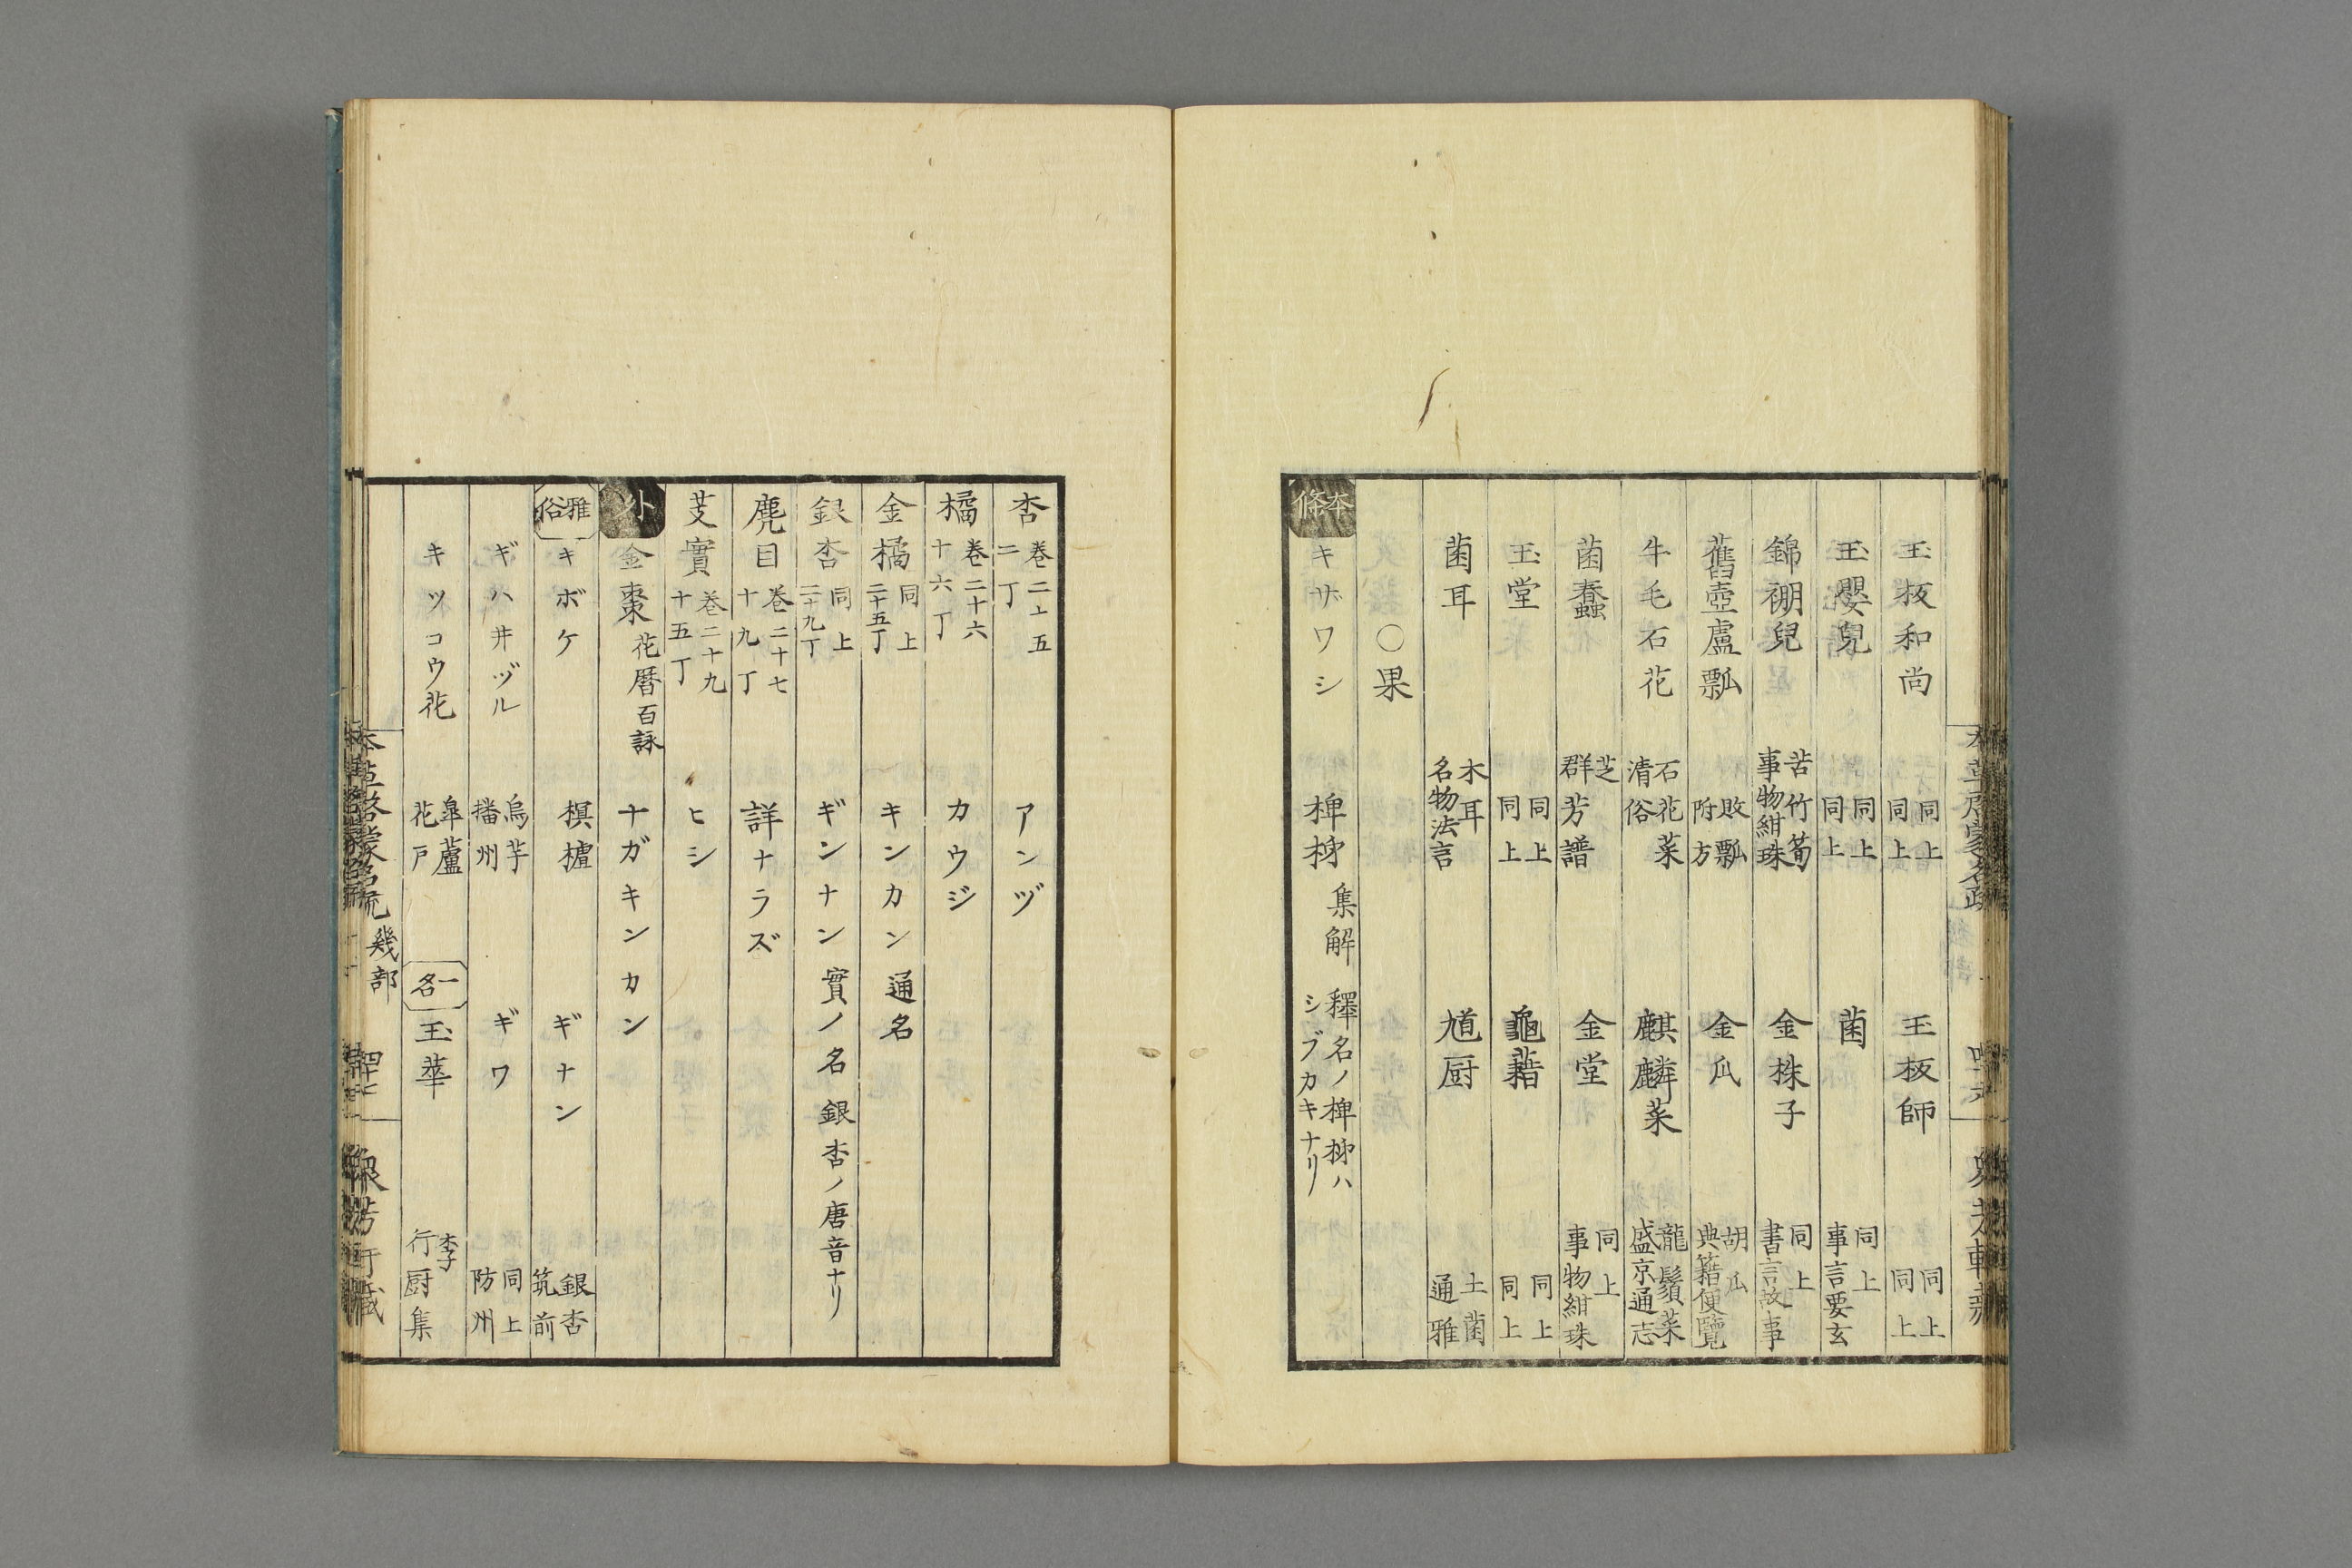 玉板和尚 同上 同上 玉板師 同上 同上
玉嬰兒 同上 同上 菌 同上 事言要玄
錦禂兒 苦竹筍 事物紺珠 金株子 同上 書言故事
舊壺盧瓢 敗瓢 附方 金瓜 胡瓜 典籍便覽
牛毛石花 石花菜 清俗 麒麟菜 龍鬚菜 盛京通志
菌蠢 芝 群芳譜 金堂 同上 事物紺珠
玉堂 同上 同上 龜藉 同上 同上
菌耳 木耳 名物法言 馗厨 土菌 通雅
○果
本條 キサワシ 椑柹 集解 釋名ノ椑柹ハシブカキナリ
杏 卷二十五 二丁 アンヅ
橘 卷二十六 十六丁 カウジ
金橘 同上 二十五丁 キンカン 通名
銀杏 同上 二十九丁 ギンナン 實ノ名 銀杏ノ唐音ナリ
麂目 卷二十七 十九丁 詳ナラズ
芰實 卷二十九 十五丁 ヒシ
外 金棗 花曆百詠 ナガキンカン
雅俗 キボケ 榠樝 ギナン 銀杏 筑前
ギハ井ヅル 烏芋 播州 ギワ 同上 防州
キツコウ花 皐蘆 花戸 一名 玉華 李子 行厨集
幾部